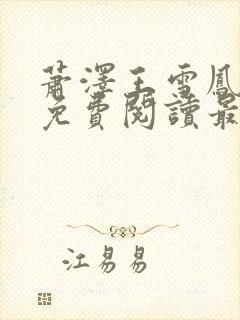 萧澤王雪鳳
免費閱讀最
江易易